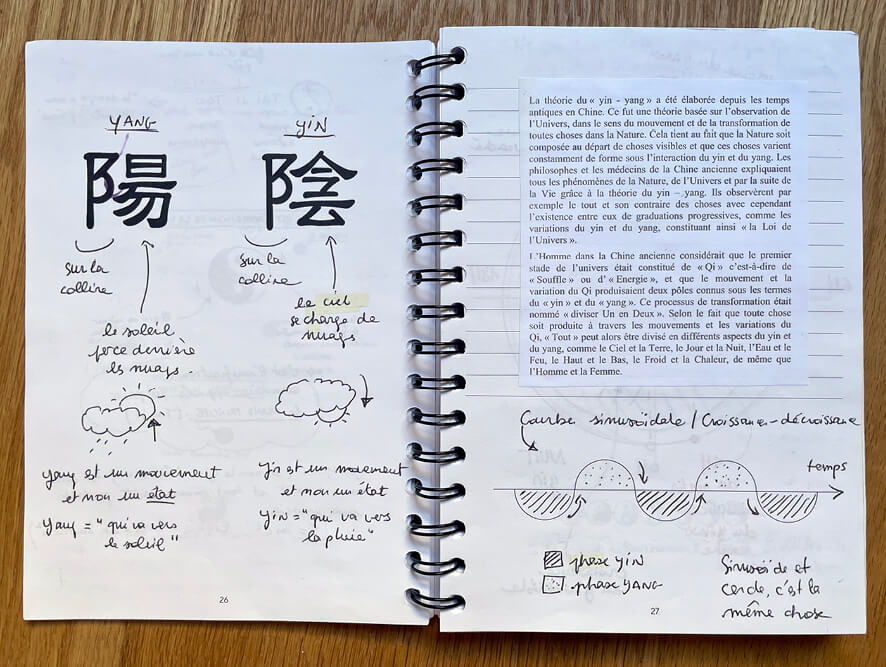 YANG
陽
sur la
colline
le soleil
perce derrière
les nuages.
Yang est un mouvement
et non un état
Yang = "qui va vers
le soleil"
YIN
陰
sur la
colline
le ciel
se charge de
nuages
Yin est un mouvement
et non un état
YIN = "qui va vers
la pluie"
26
La théorie du « yin - yang » a été élaborée depuis les temps
antiques en Chine. Ce fut une théorie basée sur l'observation de
l'Univers, dans le sens du mouvement et de la transformation de
toutes choses dans la Nature. Cela tient au fait que la Nature soit
composée au départ de choses visibles et que ces choses varient
constamment de forme sous l'interaction du yin et du yang. Les
philosophes et les médecins de la Chine ancienne expliquaient
tous les phénomènes de la Nature, de l'Univers et par la suite de
la Vie grâce à la théorie du yin – yang. Ils observèrent par
exemple le tout et son contraire des choses avec cependant
l'existence entre eux de graduations progressives, comme les
variations du yin et du yang, constituant ainsi « la Loi de
l'Univers ».
L'Homme dans la Chine ancienne considérait que le premier
stade de l'univers était constitué de « Qi » c'est-à-dire de
« Souffle » ou d' « Energie », et que le mouvement et la
variation du Qi produisaient deux pôles connus sous les termes
du « yin » et du « yang ». Ce processus de transformation était
nommé « diviser Un en Deux ». Selon le fait que toute chose
soit produite à travers les mouvements et les variations du
Qi, « Tout » peut alors être divisé en différents aspects du yin et
du yang, comme le Ciel et la Terre, le Jour et la Nuit, l'Eau et le
Feu, le Haut et le Bas, le Froid et la Chaleur, de même que
l'Homme et la Femme.
Courbe sinusoïdale / Croissance-décroissance
temps
phase YIN
phase YANG
Sinusoïde et
cercle, c'est la
même chose
27